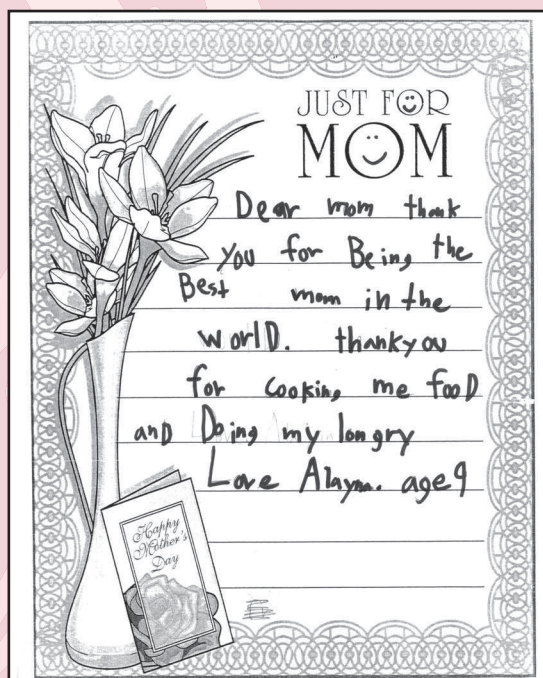 JUST FOR
MOM
Dear mom thank
you for Being the
Best mom in the
worlD. thankyou
for cooking me fooD
anD Doing my longry
Love Alayna. age 9
Happy
Mother's
Day